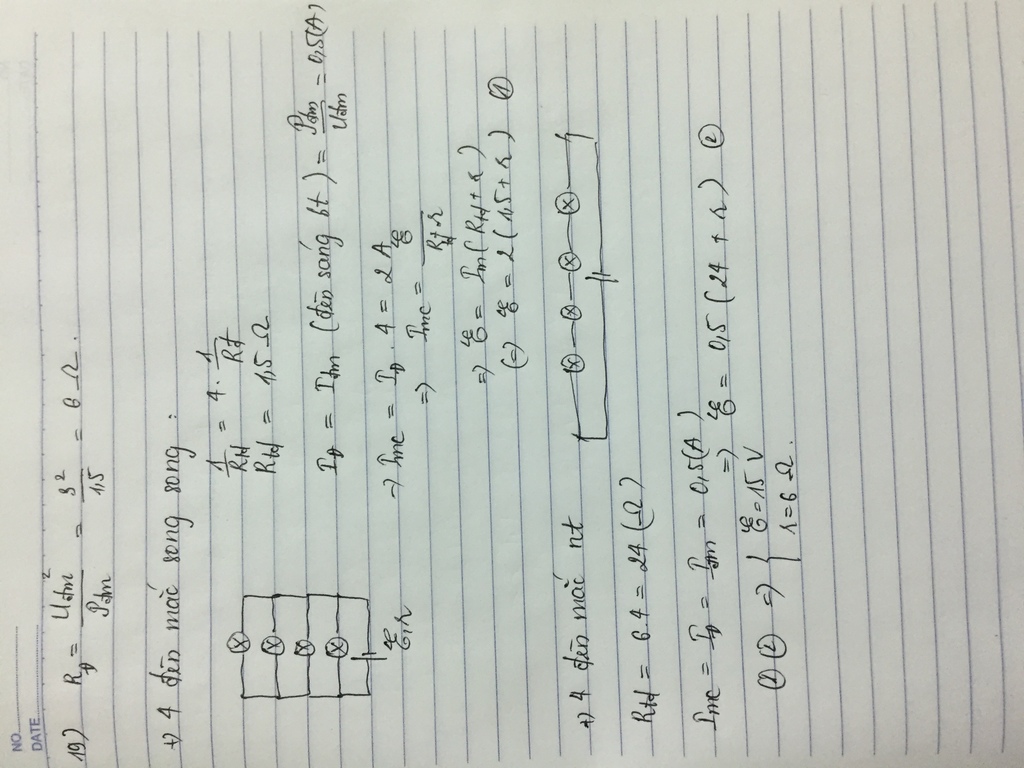 NO.
DATE
19) R_đ = U_đm² / P_đm = 3² / 1,5 = 6 Ω.
+) 4 đèn mắc song song :
1/R_tđ = 4. 1/R_đ
R_tđ = 1,5 Ω
I_đ = I_đm (đèn sáng bt) = P_đm / U_đm = 0,5(A)
-> I_mc = I_đ . 4 = 2 A
=> I_mc = ℰ / R_tđ + r
ℰ, r
=> ℰ = I_m (R_tđ + r)
(=) ℰ = 2 (1,5 + r) ①
+) 4 đèn mắc nt
R_tđ = 6.4 = 24 (Ω)
I_mc = I_đ = I_đm = 0,5(A)
=> ℰ = 0,5 (24 + r) ②
① ② => { ℰ = 15 V
r = 6 Ω.